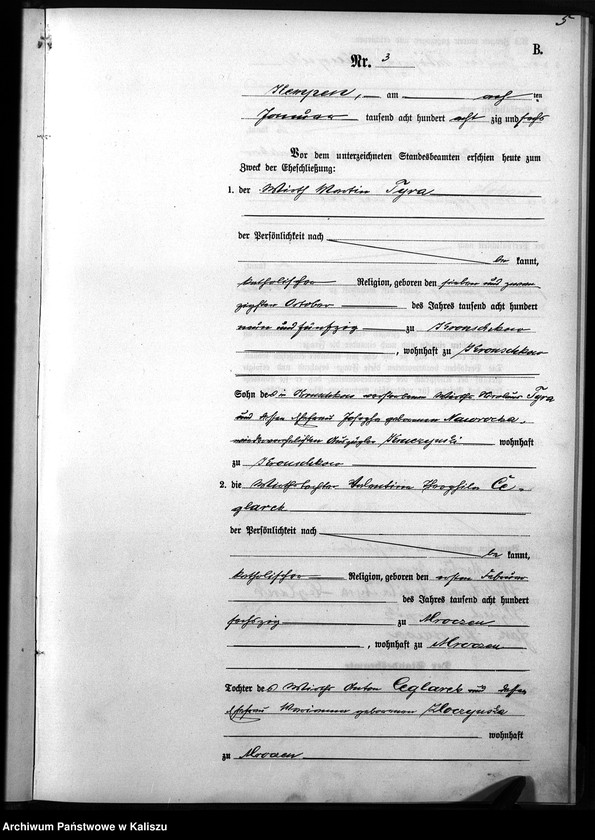 5
B.
Nr. 3
Kempen, am acht ten
Januar tausend acht hundert acht zig und sechs
Vor dem unterzeichneten Standesbeamten erschien heute zum
Zweck der Eheschließung:
1. der Wirth Martin Tyra
der Persönlichkeit nach
be kannt,
katholischer Religion, geboren den sieben und zwan
zigsten October des Jahres tausend acht hundert
neun und fünfzig zu Kronschkow
, wohnhaft zu Kronschkow
Sohn des in Kronschkow verstorbenen Wirths Tyra
und dessen Ehefrau Josepha geborenen Nawrocka,
wiederverehelichten Auszügler wohnhaft
zu Kronschkow
2. die Wirthstochter Valentina Ce-
glarek
der Persönlichkeit nach
be kannt,
katholischer Religion, geboren den ersten Februar
des Jahres tausend acht hundert
sechszig zu Mroczen
, wohnhaft zu Mroczen
Tochter des Wirths Anton Ceglarek und dessen
Ehefrau Marianna geborenen
wohnhaft
zu Mroczen
Archiwum Państwowe w Kaliszu